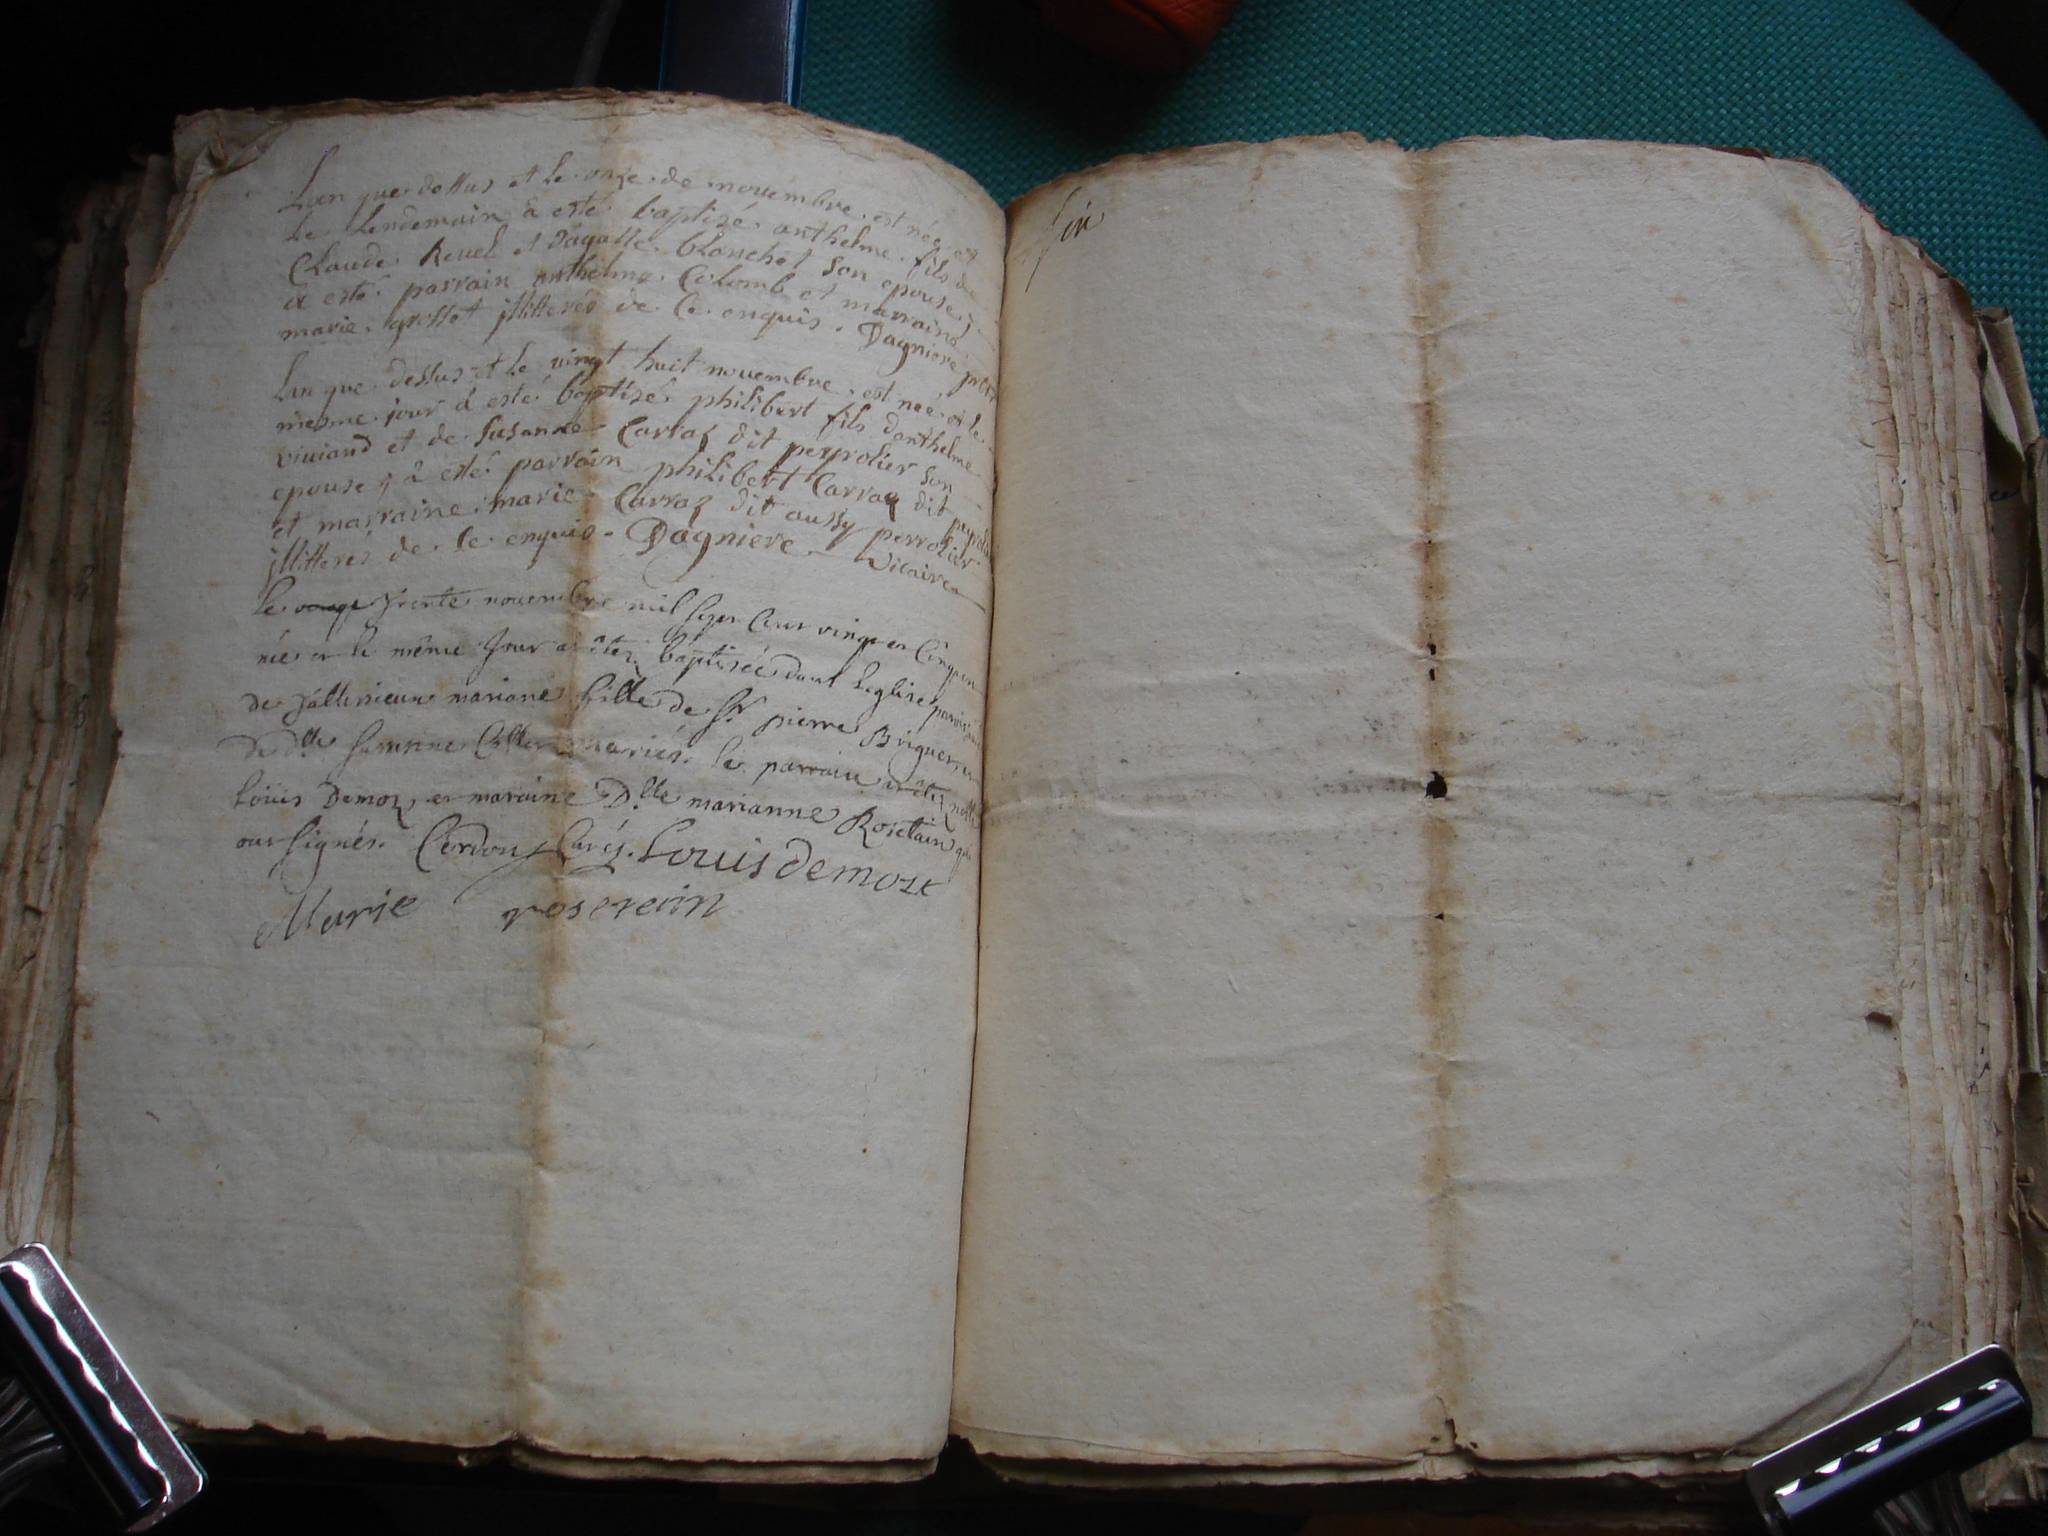 Lan que dessus et le onze de novembre est née et
le lendemain à esté baptizé anthelme fils de
Claude Revel et d'agatte blanchet son epouse;
a esté parrain anthelme Colomb et marraine
marie grosset jllitteres de ce enquis. Dagniere
Lan que dessus et le vingt huit novembre est née et le
mesme jour à esté baptizé philibert fils danthelme
viviand et de Susanne Carraz dit peyrolier son
epouse; à esté parrain philibert Carraz dit peyrolier
et marraine marie Carraz dit aussy perrolier
jllitteres de ce enquis. Dagniere Vicaire
le trente novembre mil sept cent vingt et cinq
née et le même jour a étez baptisée dans leglise
de mariane fille de Sr pierre Briguet et
de dlle mariés. le parrain a étez
Louis Demoz, et maraine Dlle marianne Rosetain qui
ont signés. Cerdon Curé. Louis demoz
Marie rosetain
fin